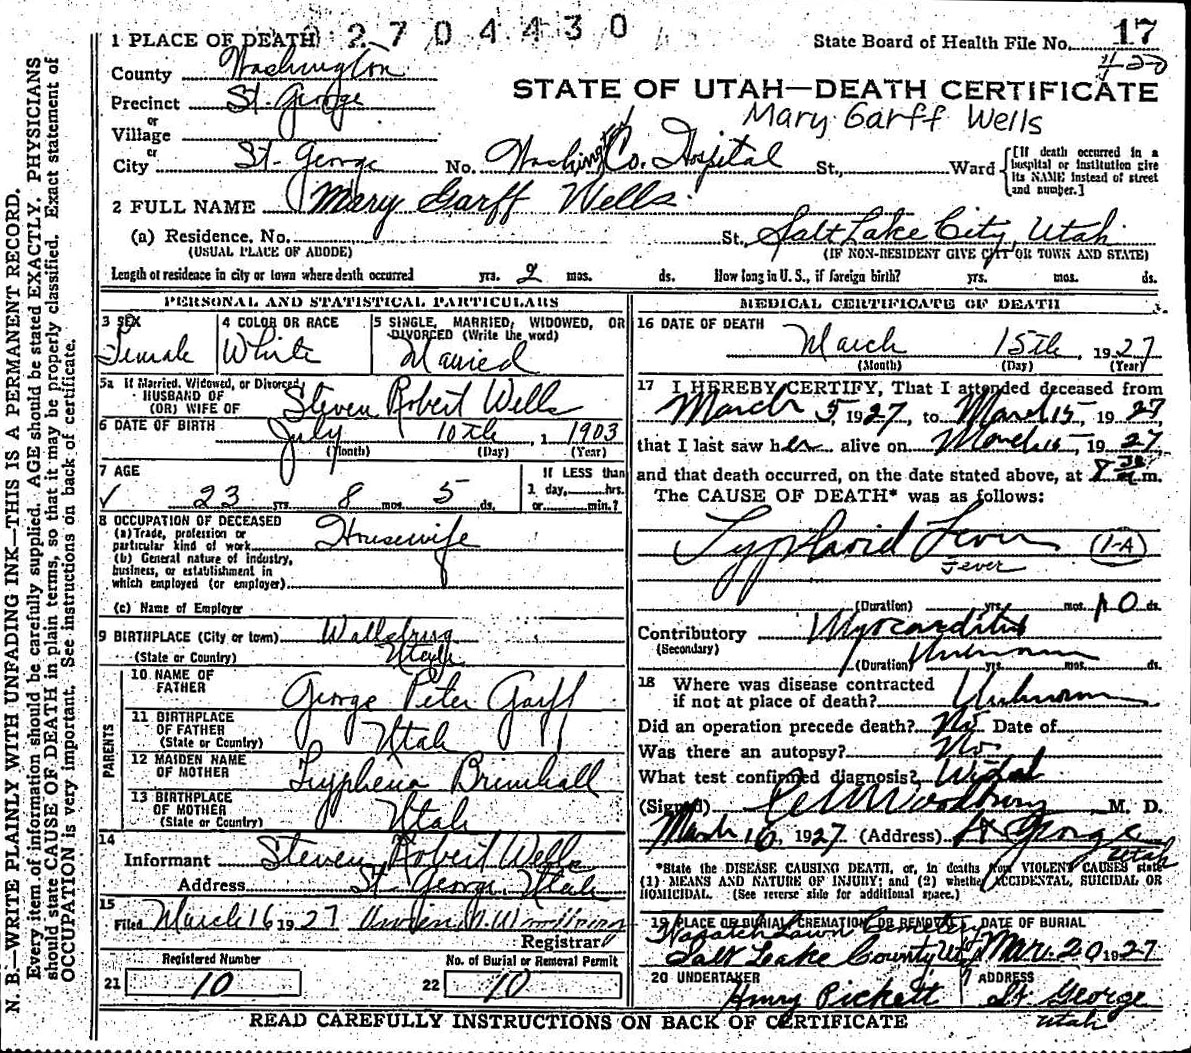 2704430
1 PLACE OF DEATH
State Board of Health File No. 17
420
County Washington
STATE OF UTAH—DEATH CERTIFICATE
Precinct St. George
or
Mary Garff Wells
Village
or
City St. George No. Washington Co. Hospital St., Ward [If death occurred in a hospital or institution give its NAME instead of street and number.]
2 FULL NAME Mary Garff Wells
(a) Residence. No. St. Salt Lake City, Utah
(USUAL PLACE OF ABODE) (IF NON-RESIDENT GIVE CITY OR TOWN AND STATE)
Length of residence in city or town where death occurred yrs. 2 mos. ds. How long in U. S., if foreign birth? yrs. mos. ds.
PERSONAL AND STATISTICAL PARTICULARS
3 SEX
Female
4 COLOR OR RACE
White
5 SINGLE, MARRIED, WIDOWED, OR
DIVORCED (Write the word)
Married
5a If Married, Widowed, or Divorced
HUSBAND OF
(OR) WIFE OF Steven Robert Wells
6 DATE OF BIRTH July 10th, 1 1903
(Month) (Day) (Year)
7 AGE
✓ 23 yrs 8 mos. 5 ds.
If LESS than
1 day, hrs.
or min.?
8 OCCUPATION OF DECEASED
(a) Trade, profession or
particular kind of work Housewife
(b) General nature of industry,
business, or establishment in
which employed (or employer)
(c) Name of Employer
9 BIRTHPLACE (City or town) Wallsburg
(State or Country) Utah
PARENTS
10 NAME OF
FATHER George Peter Garff
11 BIRTHPLACE
OF FATHER
(State or Country) Utah
12 MAIDEN NAME
OF MOTHER Tryphena Brimhall
13 BIRTHPLACE
OF MOTHER
(State or Country) Utah
14
Informant Steven Robert Wells
Address St. George, Utah
15
Filed March 16 1927
Registrar
Registered Number
21 10
No. of Burial or Removal Permit
22 10
MEDICAL CERTIFICATE OF DEATH
16 DATE OF DEATH
March 15th, 1927
(Month) (Day) (Year)
17 I HEREBY CERTIFY, That I attended deceased from
March 5, 1927, to March 15, 1927
that I last saw her alive on March 15, 1927
and that death occurred, on the date stated above, at 8 30 m.
The CAUSE OF DEATH* was as follows:
Typhoid Fever (1-A)
Fever
(Duration) yrs. mos. 10 ds.
Contributory Myocarditis
(Secondary)
(Duration) Unknown yrs. mos. ds.
18 Where was disease contracted
if not at place of death? Unknown
Did an operation precede death? No Date of
Was there an autopsy? No
What test confirmed diagnosis? Widal
(Signed) Woodbury M. D.
March 16, 1927 (Address) St George
Utah
*State the DISEASE CAUSING DEATH, or, in deaths from VIOLENT CAUSES state
(1) MEANS AND NATURE OF INJURY; and (2) whether ACCIDENTAL, SUICIDAL OR
HOMICIDAL. (See reverse side for additional space.)
19 PLACE OF BURIAL, CREMATION OR REMOVAL
Wasatch Lawn Cemetery
Salt Lake County Ut
DATE OF BURIAL
Mar. 20 1927
20 UNDERTAKER
Henry Pickett
ADDRESS
St. George
Utah
READ CAREFULLY INSTRUCTIONS ON BACK OF CERTIFICATE
N. B.—WRITE PLAINLY WITH UNFADING INK—THIS IS A PERMANENT RECORD.
Every item of information should be carefully supplied. AGE should be stated EXACTLY. PHYSICIANS
should state CAUSE OF DEATH in plain terms, so that it may be properly classified. Exact statement of
OCCUPATION is very important. See instructions on back of certificate.